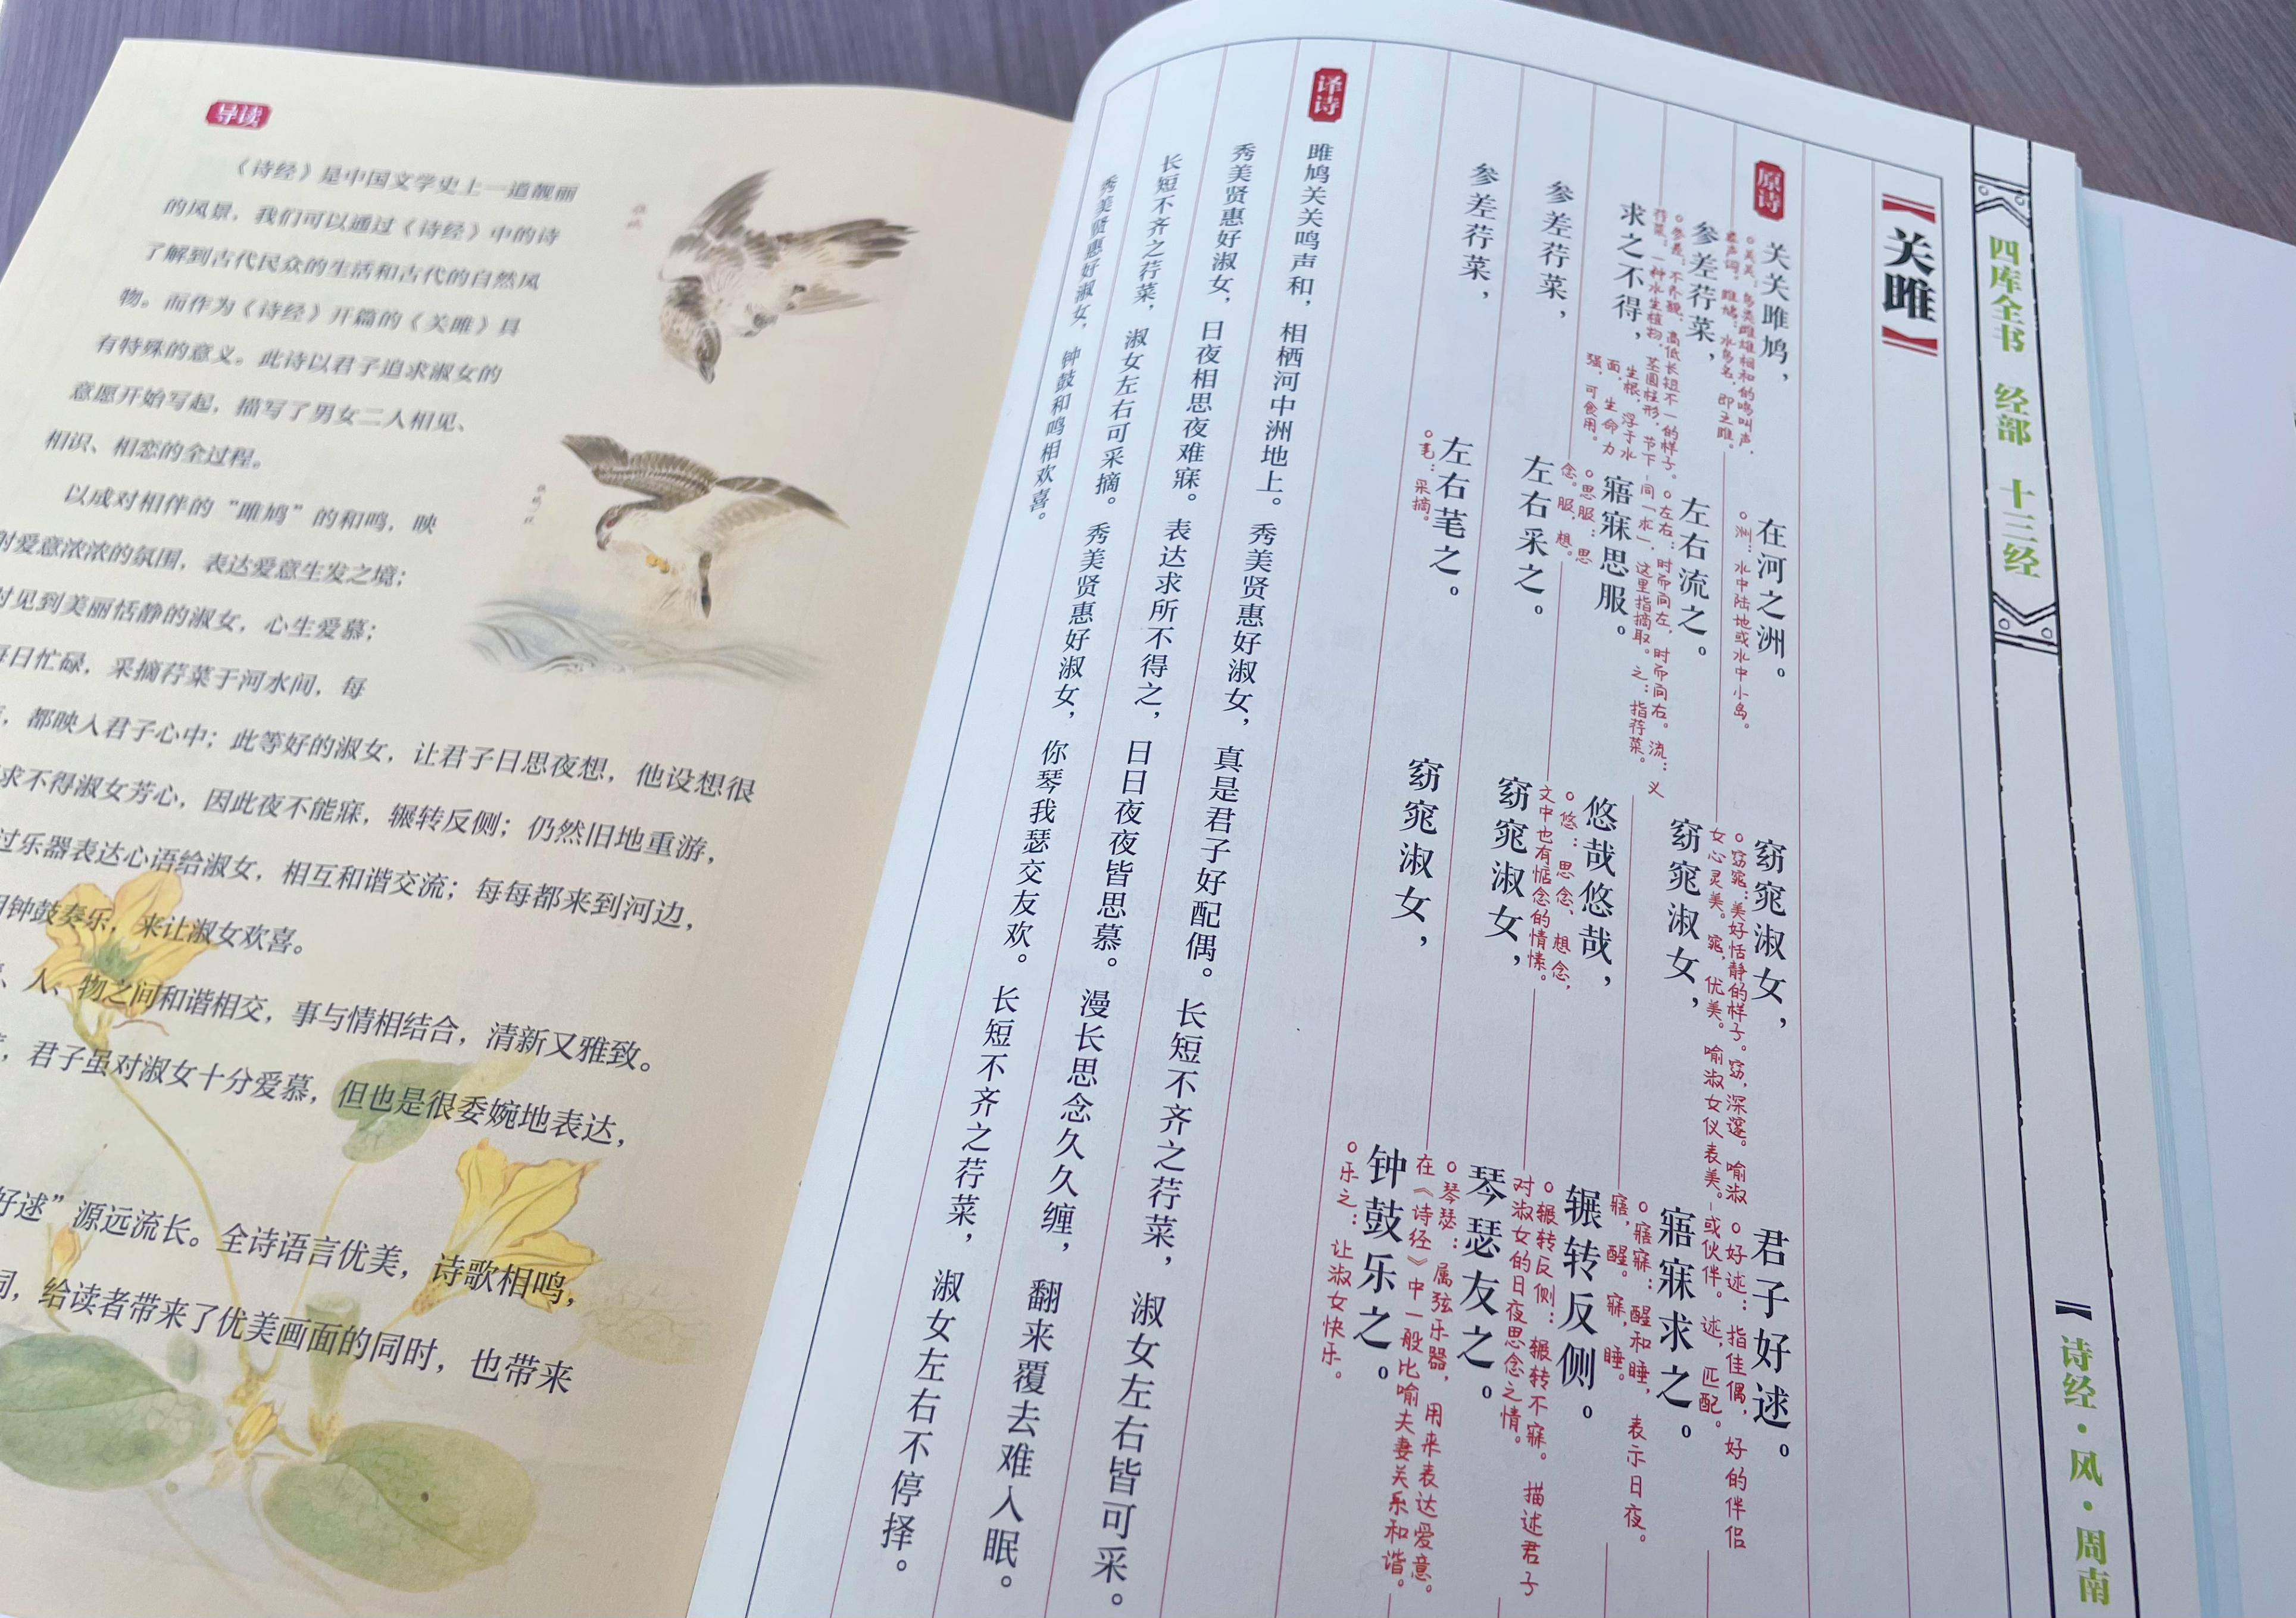 导读
《诗经》是中国文学史上一道靓丽
的风景，我们可以通过《诗经》中的诗
了解到古代民众的生活和古代的自然风
物。而作为《诗经》开篇的《关雎》具
有特殊的意义。此诗以君子追求淑女的
意愿开始写起，描写了男女二人相见、
相识、相恋的全过程。
以成对相伴的“雎鸠”的和鸣，映
射爱意浓浓的氛围，表达爱意生发之境；
时见到美丽恬静的淑女，心生爱慕；
每日忙碌，采摘荇菜于河水间，每
，都映入君子心中；此等好的淑女，让君子日思夜想，他设想很
求不得淑女芳心，因此夜不能寐，辗转反侧；仍然旧地重游，
过乐器表达心语给淑女，相互和谐交流；每每都来到河边，
用钟鼓奏乐，来让淑女欢喜。
、人、物之间和谐相交，事与情相结合，清新又雅致。
，君子虽对淑女十分爱慕，但也是很委婉地表达，
好逑”源远流长。全诗语言优美，诗歌相鸣，
同，给读者带来了优美画面的同时，也带来
四库全书 经部 十三经
诗经·风·周南
【关雎】
原诗
关关雎鸠，在河之洲。窈窕淑女，君子好逑。
○关关：鸟类雌雄相和的鸣叫声，
象声词。雎鸠：水鸟名，即王雎。
○洲：水中陆地或水中小岛。
○窈窕：美好恬静的样子。窈，深邃。喻淑
女心灵美。窕，优美。喻淑女仪表美。
○好逑：指佳偶，好的伴侣
或伙伴。逑，匹配。
参差荇菜，左右流之。窈窕淑女，寤寐求之。
○参差：不齐貌，高低长短不一的样子。
荇菜：一种水生植物，茎圆柱形，节下
生根，浮于水
面，生命力
强，可食用。
○左右：时而向左，时而向右。流：义
同“求”，这里指摘取。之：指荇菜。
○寤寐：醒和睡，表示日夜。
寤，醒。寐，睡。
求之不得，寤寐思服。悠哉悠哉，辗转反侧。
○思服：思
念。服，想。
○悠：思念、想念，
文中也有惦念的情愫。
○辗转反侧：辗转不寐。描述君子
对淑女的日夜思念之情。
参差荇菜，左右采之。窈窕淑女，琴瑟友之。
○琴瑟：属弦乐器，用来表达爱意。
在《诗经》中一般比喻夫妻关系和谐。
参差荇菜，左右芼之。窈窕淑女，钟鼓乐之。
○芼：采摘。
○乐之：让淑女快乐。
译诗
雎鸠关关鸣声和，相栖河中洲地上。秀美贤惠好淑女，真是君子好配偶。长短不齐之荇菜，淑女左右皆可采。
秀美贤惠好淑女，日夜相思夜难寐。表达求所不得之，日日夜夜皆思慕。漫长思念久久缠，翻来覆去难入眠。
长短不齐之荇菜，淑女左右可采摘。秀美贤惠好淑女，你琴我瑟交友欢。长短不齐之荇菜，淑女左右不停择。
秀美贤惠好淑女，钟鼓和鸣相欢喜。